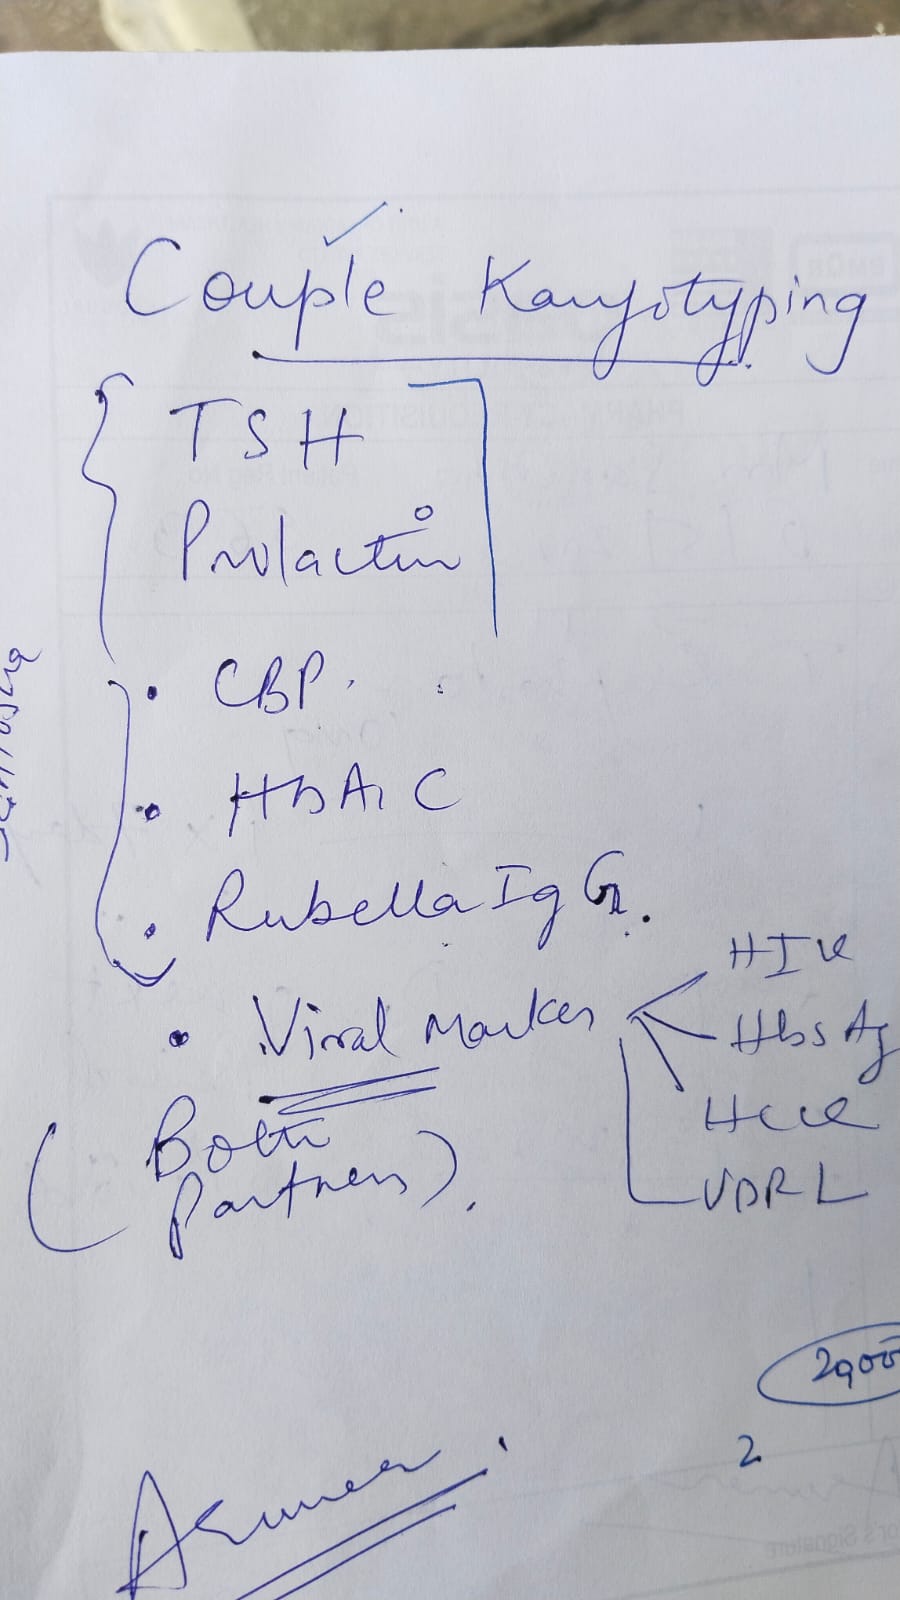 Couple Karyotyping
TSH
Prolactin
• CBP.
• HbA1C
• Rubella IgG.
• Viral Marker
HIV
HbsAg
HCV
VDRL
(Both
Partners).
2